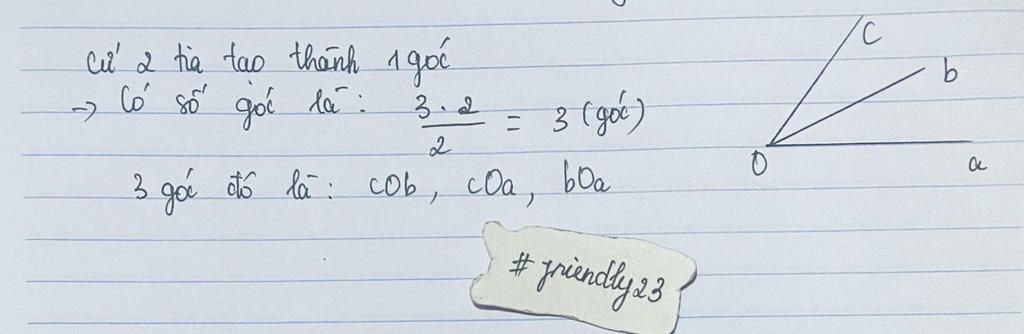 Cứ 2 tia tạo thành 1 góc
→ Có số góc là: 3 . 2 / 2 = 3 (góc)
3 góc đó là: cOb, cOa, bOa
c
b
O
a
# friendly23